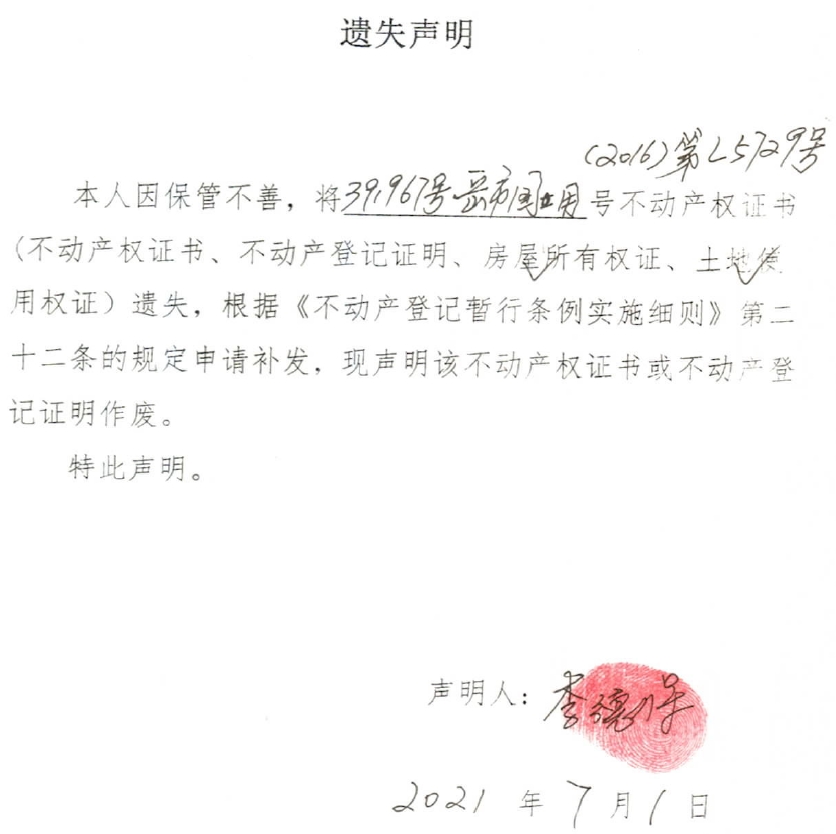 遗失声明
(2016)第L5729号
本人因保管不善，将391967号岳市国用号不动产权证书
(不动产权证书、不动产登记证明、房屋所有权证、土地使
用权证）遗失，根据《不动产登记暂行条例实施细则》第二
十二条的规定申请补发，现声明该不动产权证书或不动产登
记证明作废。
特此声明。
声明人：李德
2021年7月1日